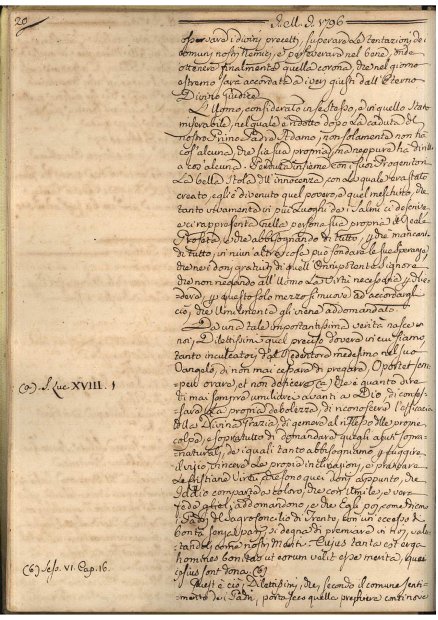 20
A.M.D. 1796
osservare i divini precetti, superare le tentazioni dei
comuni nostri Nemici, e perseverare nel bene, onde
ottenere finalmente quella corona, che nel giorno
estremo sarà accordata ai veri giusti dall'Eterno
Divino Giudice.
L'Uomo, considerato in se stesso, ed in quello Stato
miserabile, nel quale è ridotto dopo la caduta del
nostro Primo Padre Adamo, non solamente non ha
cos' alcuna, che sia sua propria, ma neppure ha diritto
a cos' alcuna. Perduta insieme con i suoi Progenitori
la bella Stola dell'innocenza, con la quale era stato
creato, egli è divenuto quel povero, e quel meschino, che
tanto vivamente in più Luoghi de' Salmi ci descrive
e ci rappresenta nella persona sua propria il Reale
Profeta, e che abbisognando di tutto, e che mancando
di tutto, in niun' altra cosa può fondare le sue speranze,
che nei doni gratuiti di quell' Onnipotente Signore
che non negando all' Uomo la Virtù necessaria
per questo solo mezzo si muove ad accordargli
ciò, che umilmente gli viene addomandato.
Da una tale importantissima verità nasce in
noi, Dilettissimi quel preciso dovere in cui siamo,
tanto inculcatoci dal Redentore medesimo nel suo
Vangelo, di non mai cessare di pregare, Oportet sem-
per orare, et non deficere (a) Che è quanto dire
di mai sempre umiliare avanti a Dio, di confes-
sare la propria debolezza, di riconoscere l'efficacia
della Divina Grazia, di gemere al riflesso delle proprie
colpe, e sopratutto di domandare quegli ajuti sopra-
naturali, de' quali tanto abbisogniamo, per fuggire
il vizio, vincere le propie inclinazioni, e praticare
le Cristiane Virtù che sono quei doni appunto, che
Iddio comparte a coloro, che con umile, e vera
fede gliel' addomandono, e che Egli poi come dicono
i Padri del Sagrosancto Concilio di Trento, con un eccesso di
bontà senza pari si degna di premiare in noi, valu-
tandoli come nostri meriti. Cujus tanta est erga
homines bonitas ut eorum velit esse merita, quae
ipsius sunt dona (b)
Quest' è ciò, Dilettissimi, che, secondo il comune senti-
mento dei Padri, porta seco quella preghiera continova
(a) S. Luc. XVIII. 1
(b) Sess. VI. Cap. 16.